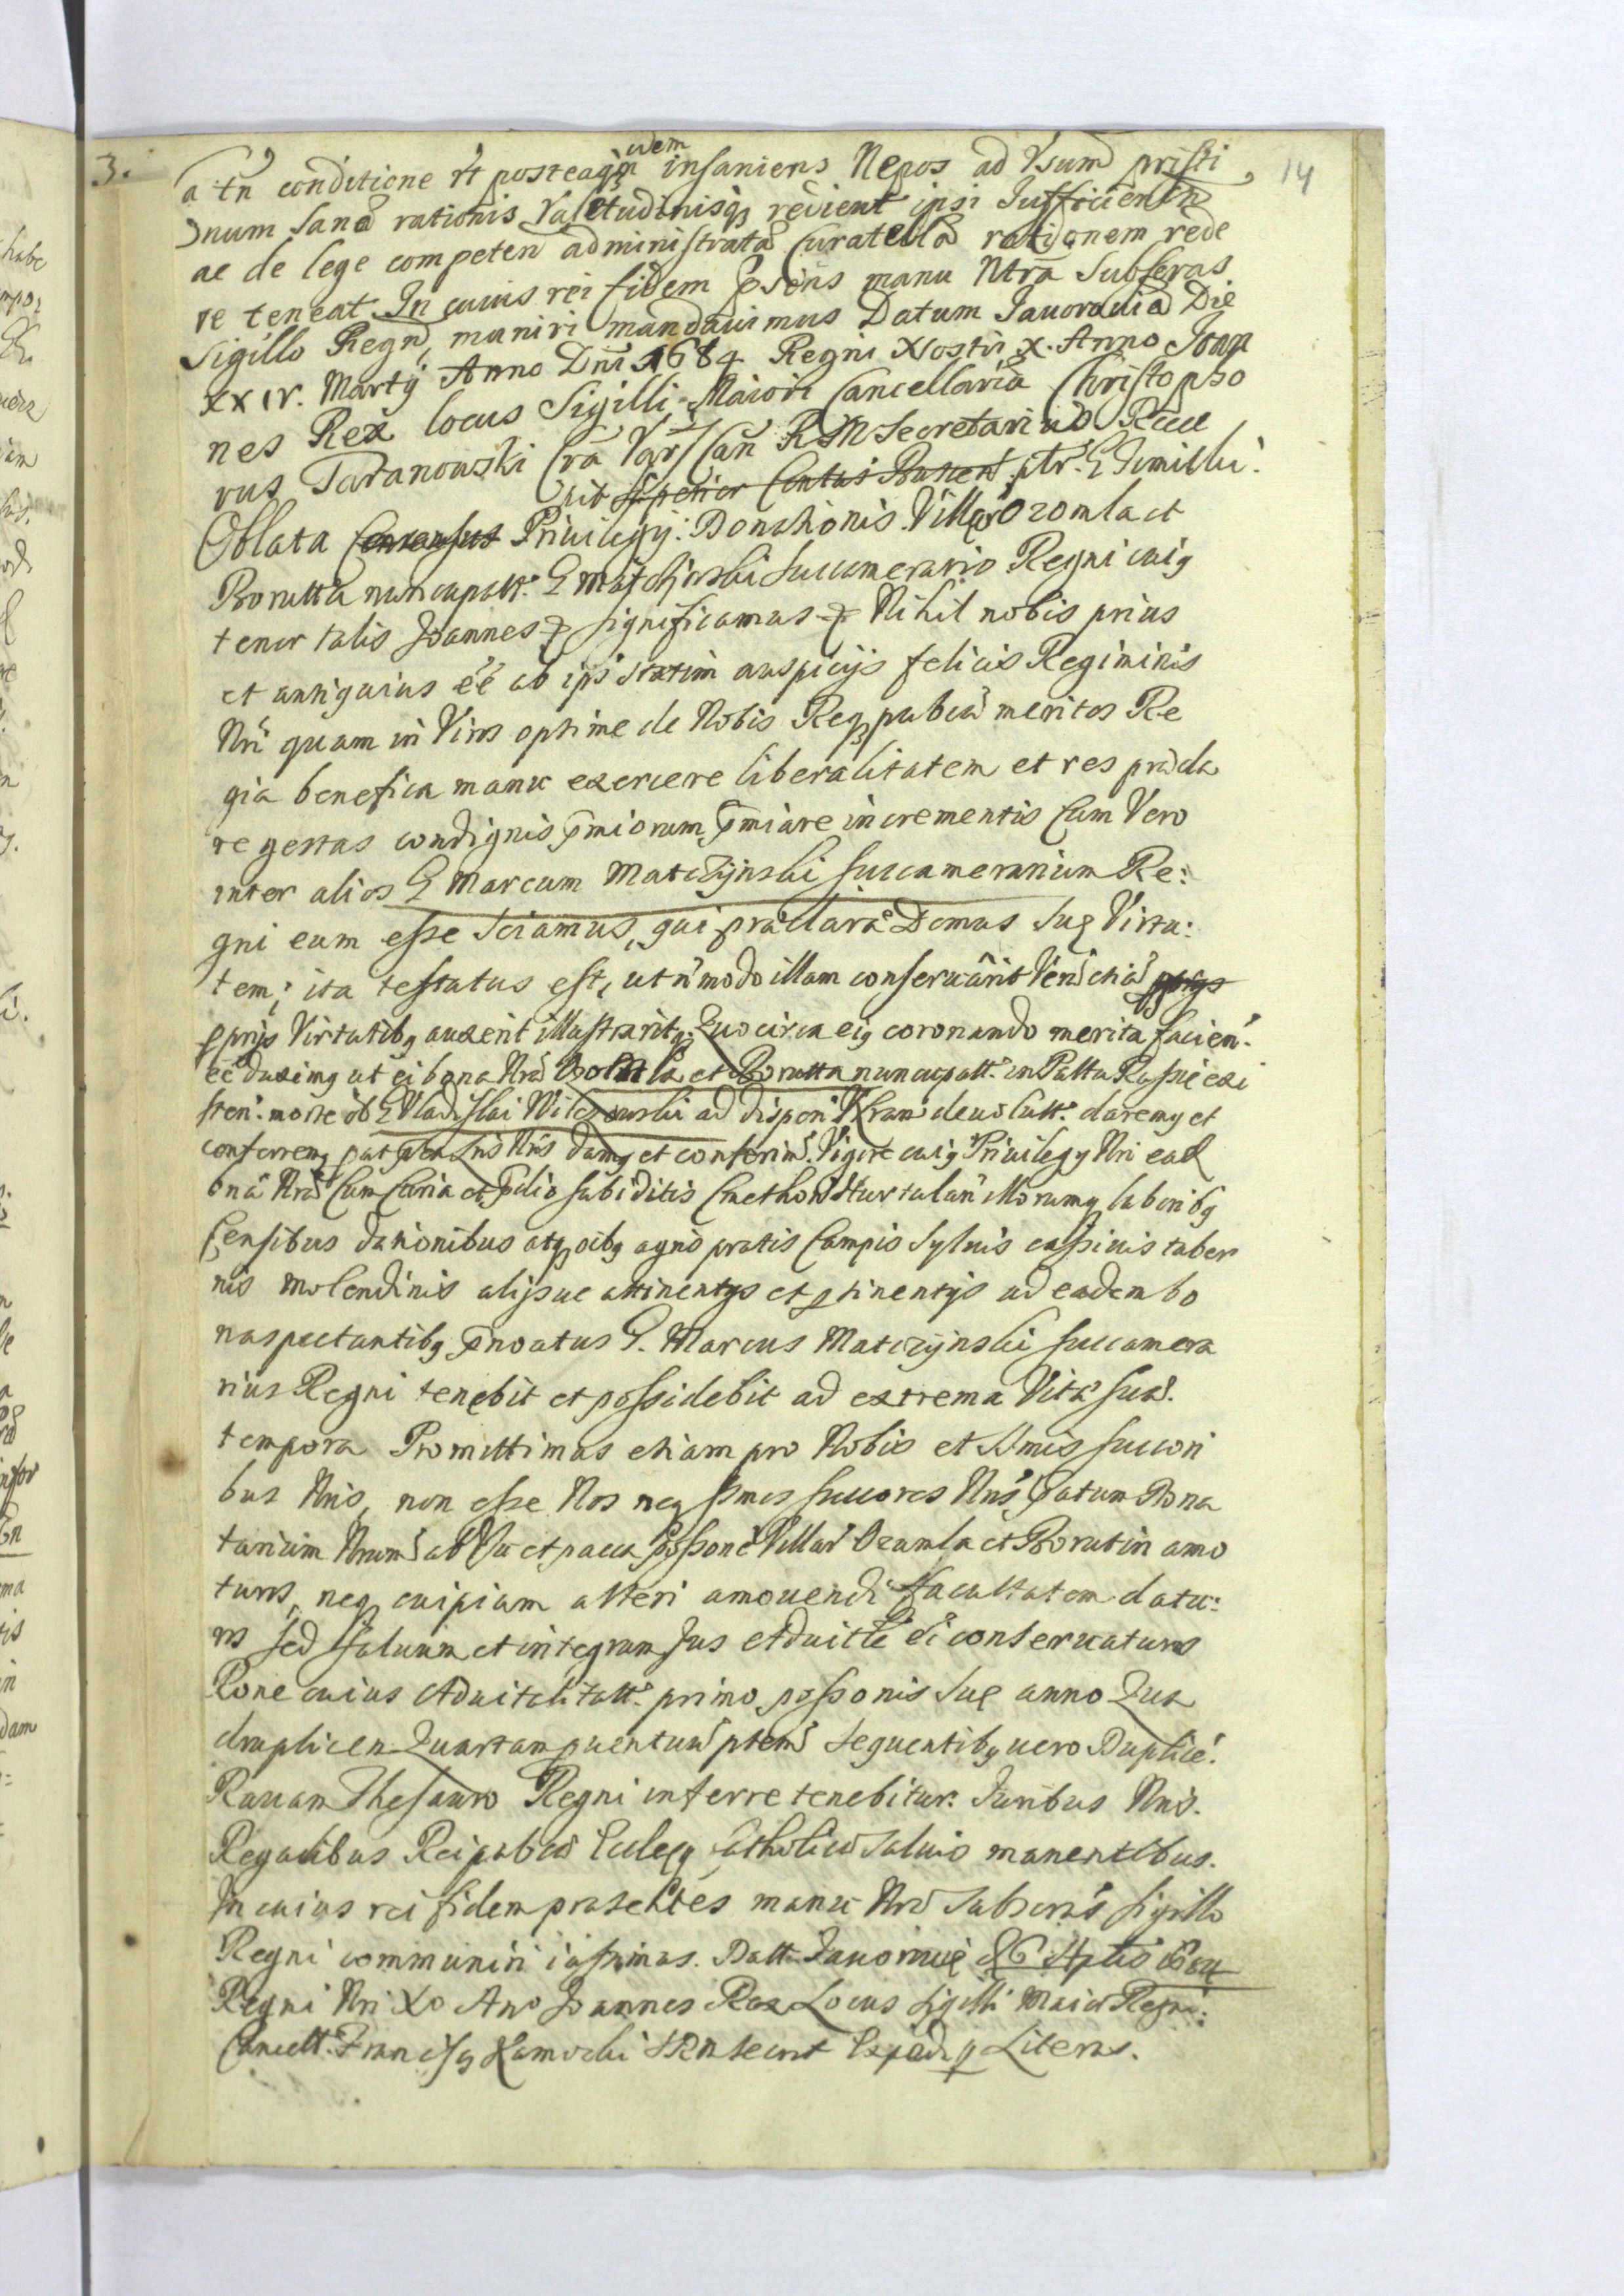 3.
14
a tn conditione vt posteaqm idem insaniens Nepos ad Vsum pristi
num sanæ rationis Valetudinisq redierit ipsi sufficien in
ac de lege competen administrata Curatella rationem rede
re teneat. In cuius rei fidem psens manu Ntra Subscras
Sigillo Regni maniri mandauimus Datum Iauorauiæ Die
XXIV. Martij Anno Dni 1684 Regni Nostri X. Anno Ioan
nes Rex locus Sigilli Maioris Cancellariæ Christopho
rus Taranowski Cra Var Can RSM Secretarius Rece
pit
Oblata Consensus Priuilegij Donationis Villar Ozomla et
Borutta nuncupatt. G Matczynski Succamerario Regni cuig
tenor talis Joannes & significamus & Nihil nobis prius
et antiquius ee ab ipsi statim auspicijs felicis Regiminis
Nri quam in Viros optime de Nobis Req publica meritos Re
gia benefica manu exercere liberalitatem et res præcla
re gestas condignis pmiorum pmiare incrementis Cum Vero
inter alios G Marcum Matczynski succamerarium Re:
gni eum esse sciamus, qui præclara Domus suę Virtu:
tem; ita testatus est, ut n modo illam conseruarit Verũ etiã
pprijs Virtutibg auxerit illustraritq; Quocirca eig coronando merita facien.
ee duximg ut ei bona Nra Ozomla et Borutta nuncupatt. in Pallu Russię exi
sten. morte ol G Vladislai Wilczkowski ad dispon Nram deuolutt. daremg et
conferremg Lris Nris damg et conferimg. Vigore cuig Priuilegy Nri ead
bna Nra Cum Curia et Pdio subditis Cmethonib Hortulan illorumq laboribg
Censibus dationibus atq oibg agris pratis Campis Syluis cassinis taber
nis molendinis alijsue attinentys et ptinentijs ad eadem bo
na spectantibg pnoatus G. Marcus Matczynski succamera
rius Regni tenebit et possidebit ad extrema Vitæ suæ.
tempora Promittimus etiam pro Nobis et Smis succeri
bus Nris, non esse Nos neq smos succores Nros Datum Dona
tarium Nrum ab Vsu et paca possone Villar Ozomla et Borutin amo
turos, neq cuipiam alteri amouendi facultatem datu:
ros sed saluum et integrum Jus Aduitle ei conseruaturos
Rone cuius Aduitalitatt. primo possonis suę anno Qua
druplicem Quartam puentuũ ptem sequentibg uero Duplice.
Rauam Thesauro Regni inferre tenebitur. Juribus Nris.
Regalibus Reipubcæ Eccleq Catholicæ saluis manentibus.
In cuius rei fidem præsentes manu Nra subscras sigillo
Regni communiri iussimus. Datt. Iauoriuię
Regni Nri Xo Ano Joannes Rex Locus sigilli Maioris Regni:
Cancell. Francisg